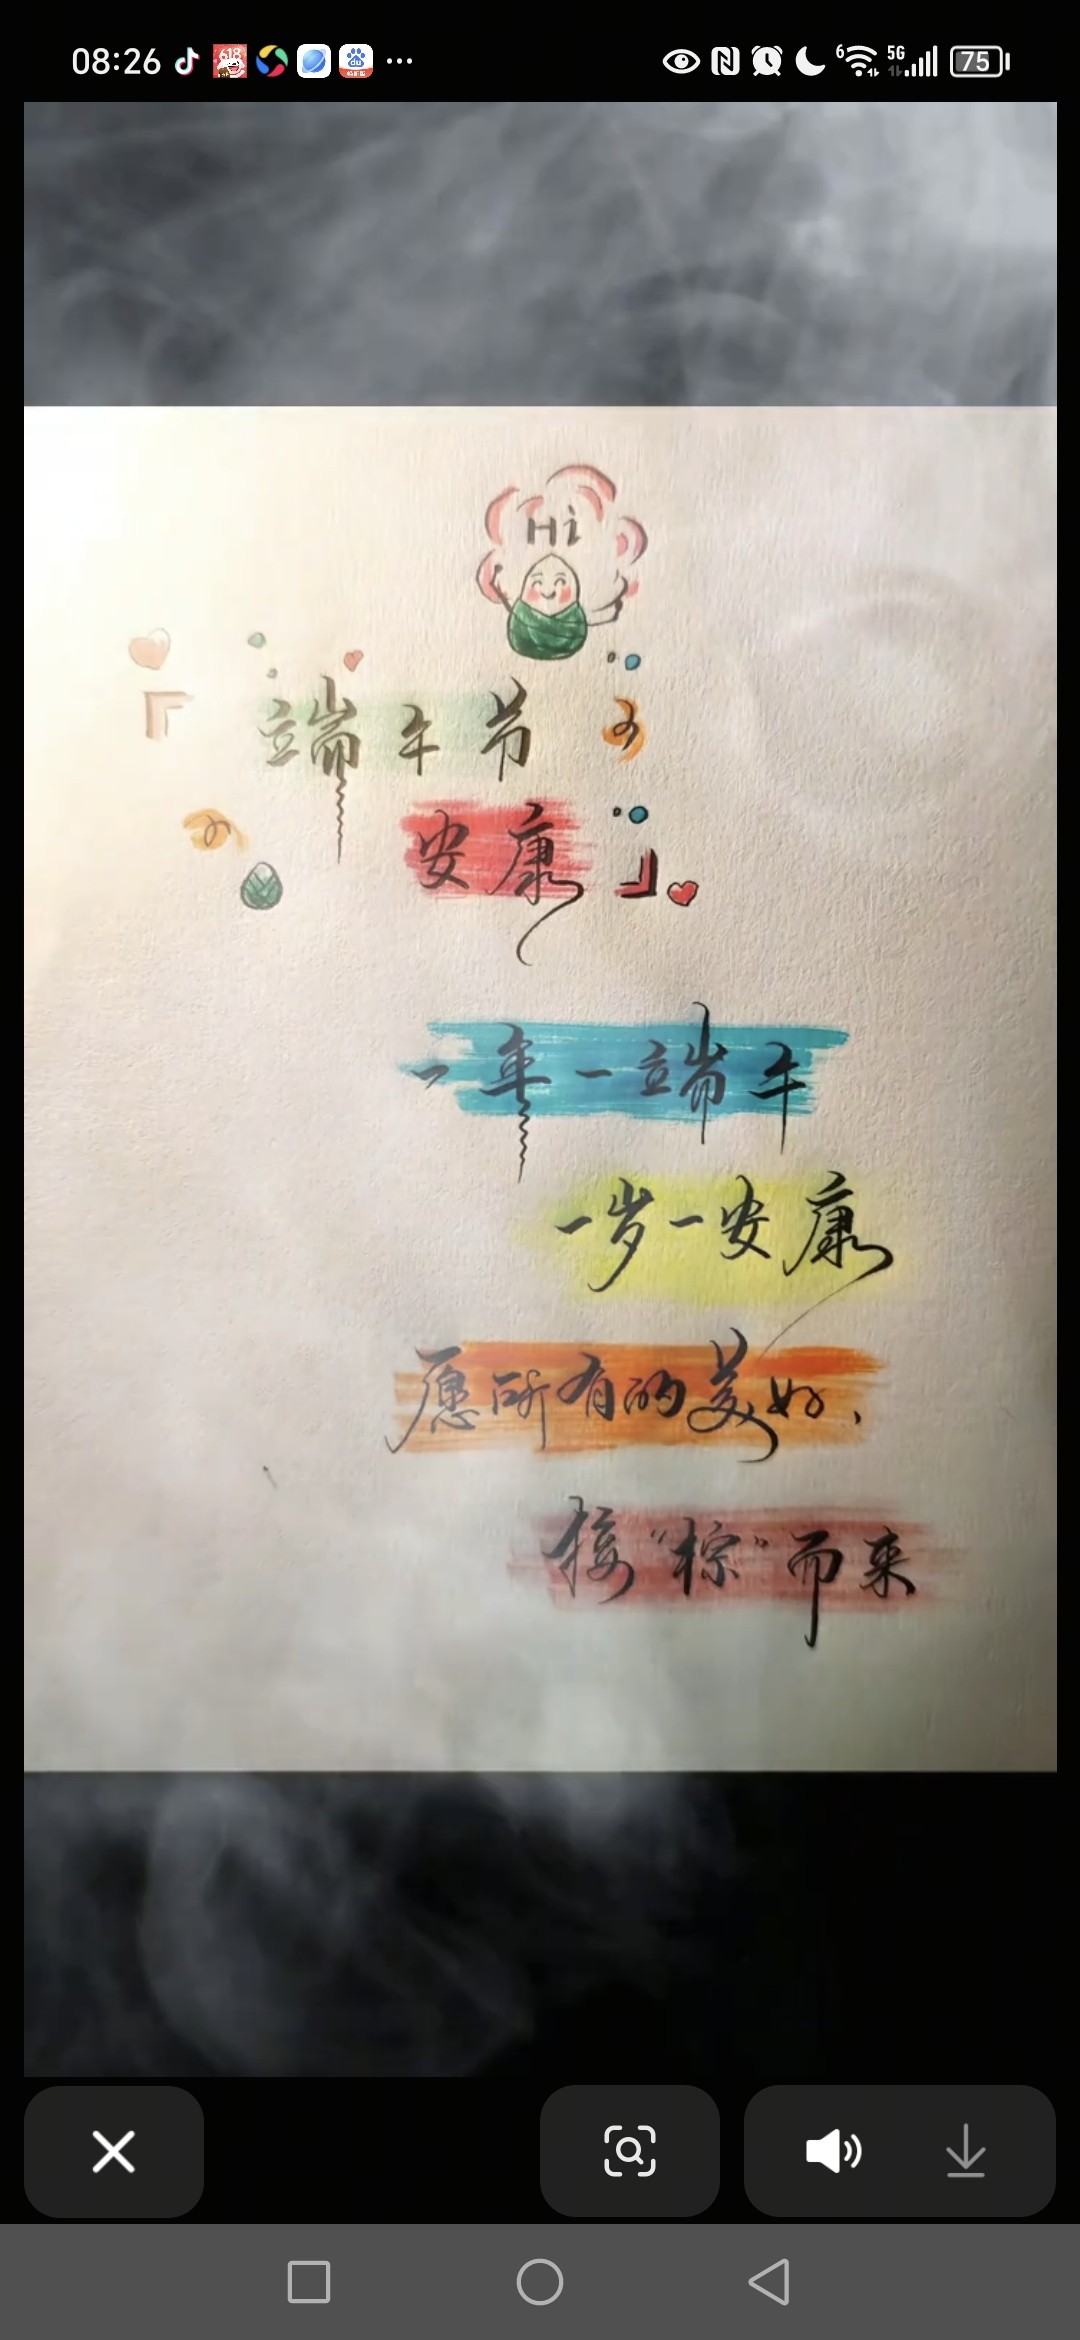 08:26
618
du
6
5G
75
Hi
「端午节
安康」
一年一端午
一岁一安康
愿所有的美好、
接“棕”而来